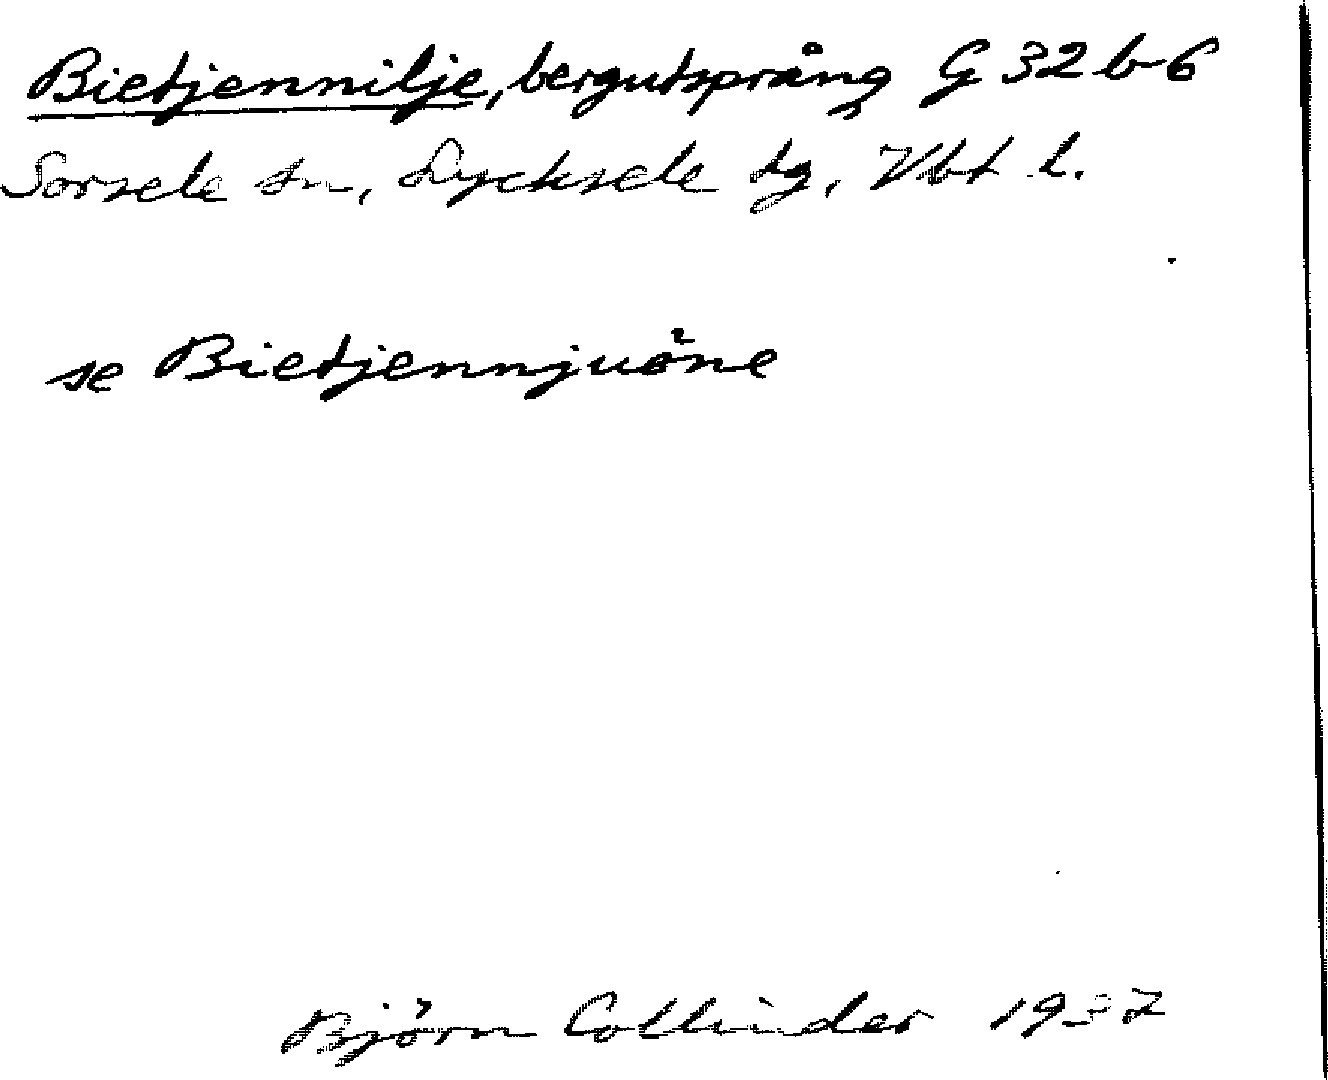 Bietjennilje, bergutsprång G 32 b-6
Sorsele sn, Lycksele tg, Vbt l.
se Bietjennjuöne
Björn Collinder 1937